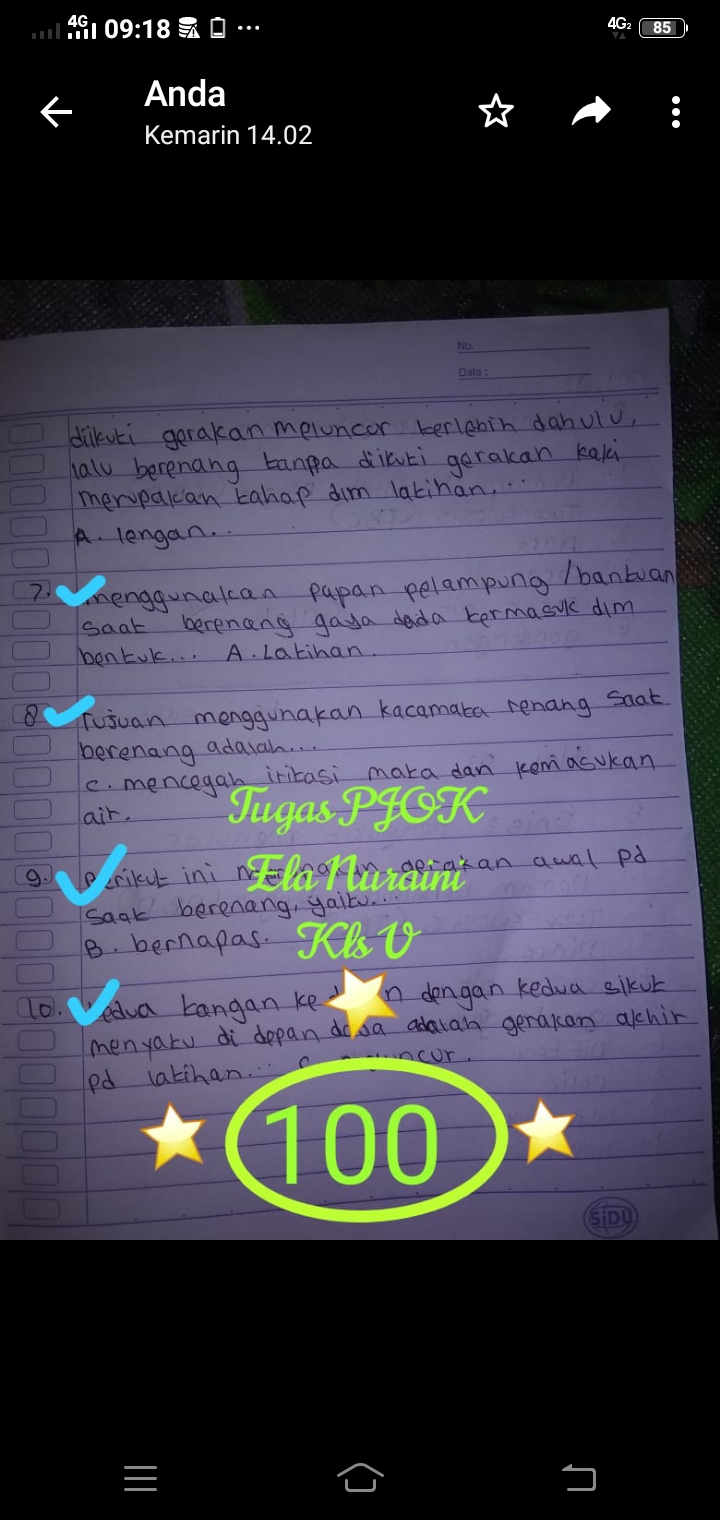 4G 09:18 ...
4G2 85
Anda
Kemarin 14.02
No.
Date :
diikuti gerakan meluncur terlebih dahulu,
lalu berenang tanpa diikuti gerakan kaki
merupakan tahap dlm latihan...
A. lengan..
7. menggunakan papan pelampung /bantuan
saat berenang gaya dada termasuk dlm
bentuk... A. Latihan.
8 Tujuan menggunakan kacamata renang saat
berenang adalah...
c. mencegah iritasi mata dan kemasukan
air.
Tugas PJOK
9. Berikut ini gerakan awal pd
Ela Nuraini
saat berenang, yaitu...
B. bernapas.
Kls V
10. kedua tangan ke dengan kedua sikut
menyatu di depan dada adalah gerakan akhir
pd latihan...
100
SiDU